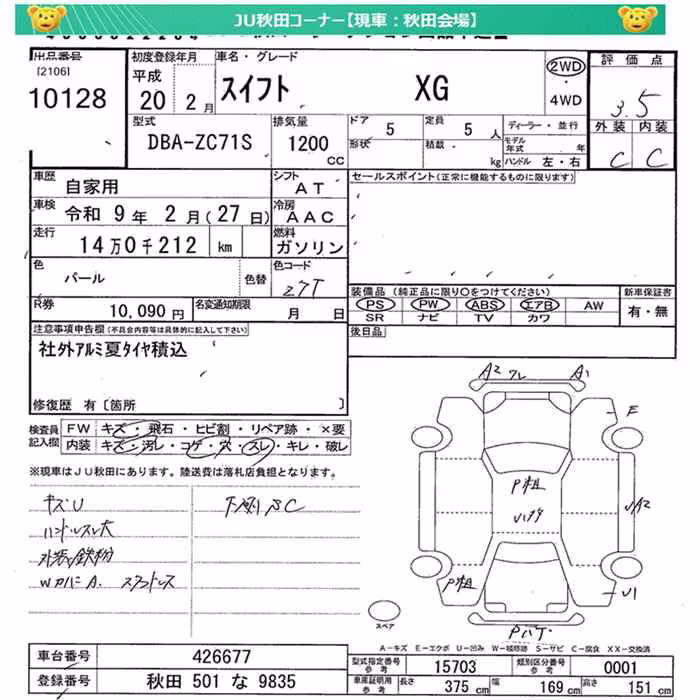 JU秋田コーナー【現車：秋田会場】
出品番号 初度登録年月 車名・グレード 2WD 評価点
[2106] 平成 スイフト XG ・ 3.5
10128 20 2月 4WD 外装 内装
型式 排気量 ドア 5 定員 5人 ディーラー・並行 C C
DBA-ZC71S 1200 形状 積載 モデル年式 年
cc kg ハンドル 左・右
車歴 自家用 シフト AT セールスポイント(正常に機能するものに限ります)
車検 令和 9年 2月(27日) 冷房 AAC
走行 14万0千212 km 燃料 ガソリン
色 パール 色替 色コード Z7T
装備品 (純正品に限り○をつけてください) 新車保証書
R券 10,090円 名変通知期限 月 日 PS PW ABS エアB AW 有・無
SR ナビ TV カワ
注意事項申告欄(不具合内容等は具体的に記入して下さい) 後日品
社外アルミ夏タイヤ積込
修復歴 有[箇所 ]
A2 A1
F
検査員 FW キズ・飛石・ヒビ割・リペア跡・×要
記入欄 内装 キズ・汚レ・コゲ・穴・スレ・キレ・破レ
※現車はJU秋田にあります。陸送費は落札店負担となります。
P粗
キズU 下廻りSC
ハンドルスレ大
外装 鉄粉
WカバーA. スタッドレス
P粗 U1
スペア
A-キズ E-エクボ U-凹み W-補修跡 S-サビ C-腐食 XX-交換済
車台番号 426677 型式指定番号 参考 15703 類別区分番号 参考 0001
登録番号 秋田 501 な 9835 車庫証明用 参考 長さ 375cm 幅 169cm 高さ 151cm